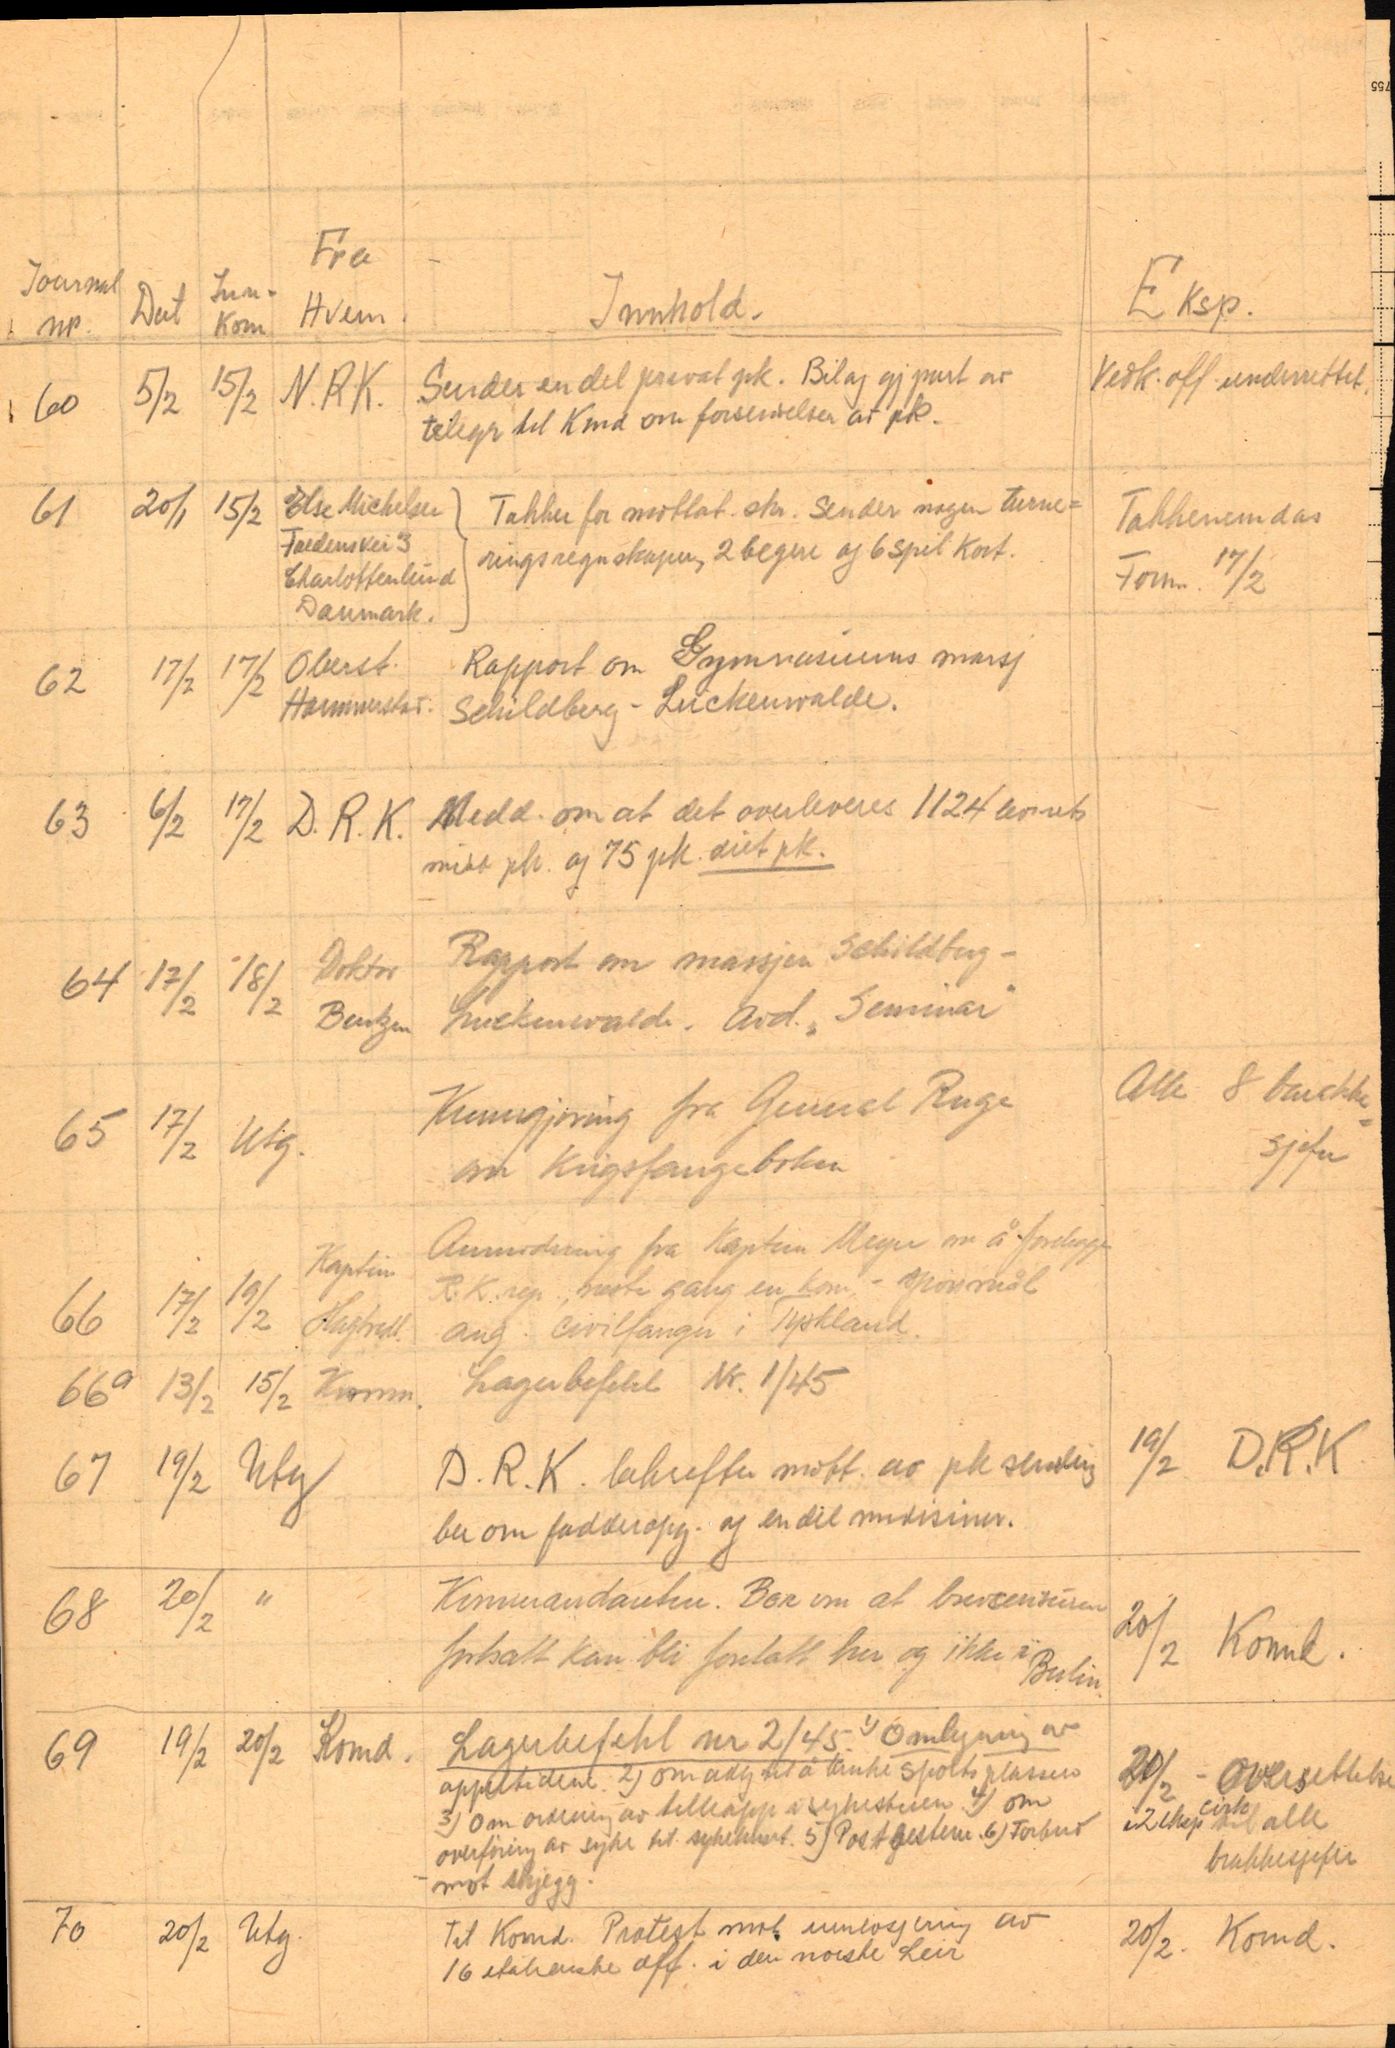 Fra
Journal nr. Dat Inn-kom Hvem. Innhold. Eksp.
60 5/2 15/2 N.R.K. Sender en del privat pk. Bilag gjpart av Vedk. off. underrettet.
telegr til Kmd om forsendelser av pk.
61 20/1 15/2 Else Michelsen Takker for mottat. skr. Sender nogen turne= Takkenemdas
3 oringsregnskaper, 2 begere og 6 spil Kort. Form. 17/2
Charlottenlund
Danmark.
62 17/2 17/2 Oberst. Rapport om Gymnasiums marsj
Hammerstad. Schildberg - Luckenwalde.
63 6/2 17/2 D.R.K. Medd. om at det overleveres 1124
pk. og 75 pk. diet pk.
64 17/2 18/2 Doktor Rapport om marsjen Schildberg -
Bentzen Luckenwalde. Avd. „Seminar"
65 17/2 Utg. Kunngjøring fra General Ruge Alle 8 barakke=
om Krigsfangeboken sjefer
Kaptein Anmodning fra Kaptein Meyer om å forelegge
66 17/2 19/2 R.K. rep. neste gang en kom. - spørsmål
ang. civilfanger i Tyskland.
66a 13/2 15/2 Komm. Lagerbefehl Nr. 1/45
67 19/2 Utg D.R.K. bekrefter mott. av pk sending 19/2 D.R.K
ber om fadderopg. og en del medisiner.
68 20/2 " Kommandanten. Ber om at brevcensuren 20/2 Komd.
fortsatt kan bli foretatt her og ikke i
Berlin.
69 19/2 20/2 Komd. Lagerbefehl nr 2/45. 1) Omlegning av
appeltidene. 2) Om adg til å bruke sportsplassen 20/2 - oversettelse
3) Om ordning av telleapp i sykestuen 4) om i 2 eksp cirk til alle
overføring av syke til sykehuset. 5) Postgesteu. 6) Forbud brakkesjefer
mot skjegg.
70 20/2 Utg. Til Komd. Protest mot innlosjering av 20/2. Komd.
16 italienske off. i den norske Leir